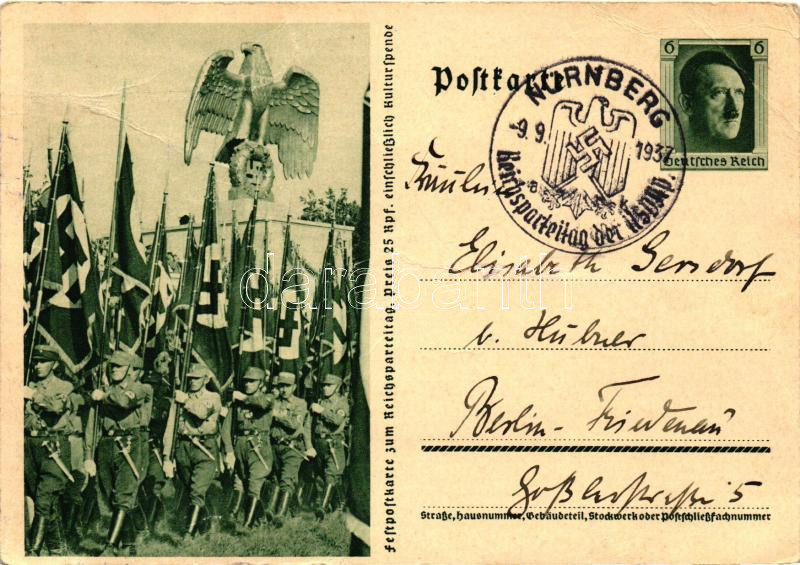 Festpostkarte zum Reichsparteitag. Preis 25 Rpf. einschließlich Kulturspende
Postkarte
NÜRNBERG
-9.9. 1937
Reichsparteitag der NSDAP.
6 6
Deutsches Reich
Fräulein
Elisabeth Gersdorf
b. Hübner
Berlin-Friedenau
Goßlerstraße 5
Straße, Hausnummer, Gebäudeteil, Stockwerk oder Postschließfachnummer
darabanth